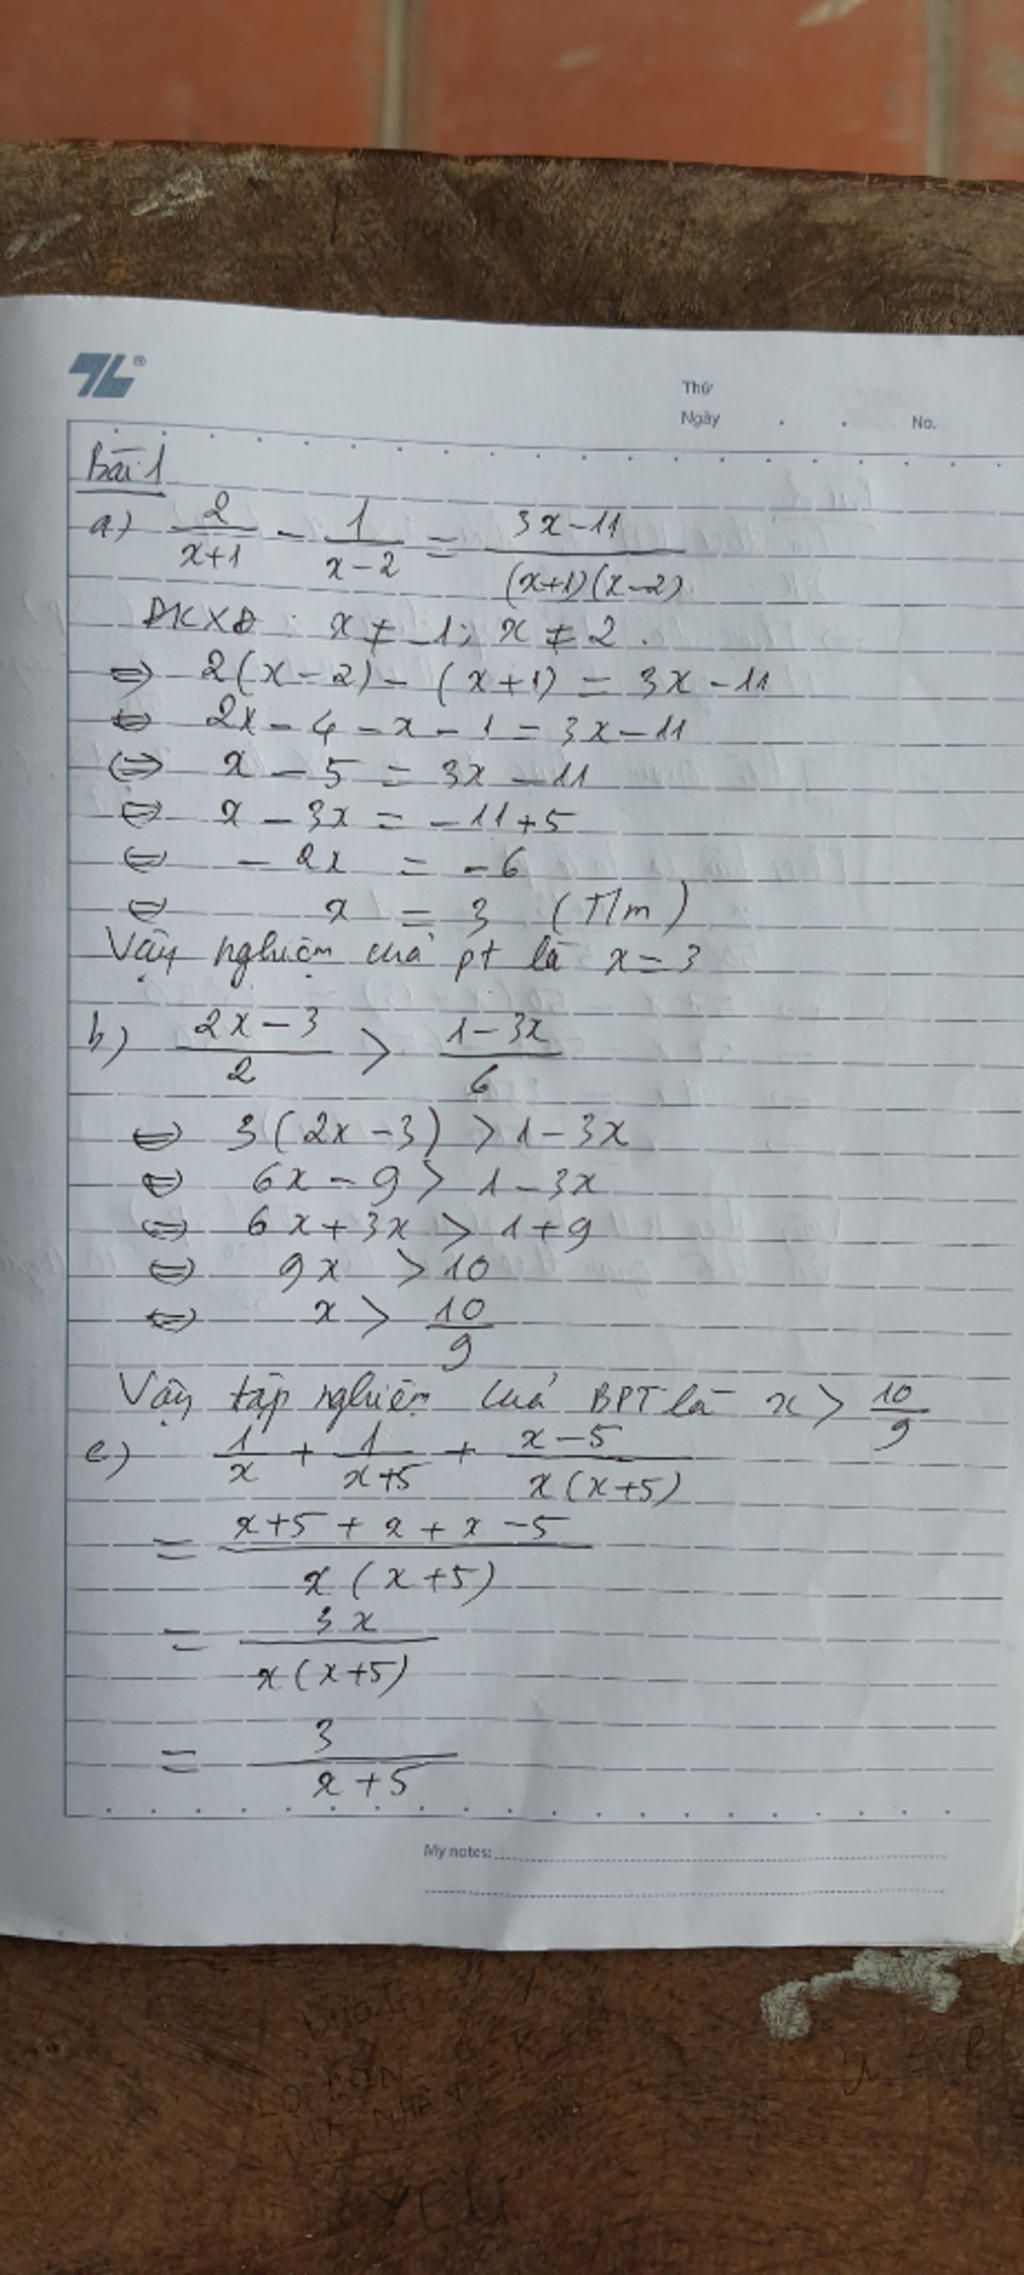 TL®
Thứ
Ngày . . No.
Bài 1
a) 2/(x+1) - 1/(x-2) = (3x-11)/((x+1)(x-2))
ĐKXĐ: x ≠ -1; x ≠ 2.
=> 2(x-2) - (x+1) = 3x-11
<=> 2x-4-x-1 = 3x-11
<=> x-5 = 3x-11
<=> x-3x = -11+5
<=> -2x = -6
<=> x = 3 (T/m)
Vậy nghiệm của pt là x=3
b) (2x-3)/2 > (1-3x)/6
<=> 3(2x-3) > 1-3x
<=> 6x-9 > 1-3x
<=> 6x+3x > 1+9
<=> 9x > 10
<=> x > 10/9
Vậy tập nghiệm của BPT là x > 10/9
c) 1/x + 1/(x+5) + (x-5)/(x(x+5))
= (x+5+x+x-5)/(x(x+5))
= 3x/(x(x+5))
= 3/(x+5)
My notes:
YEU